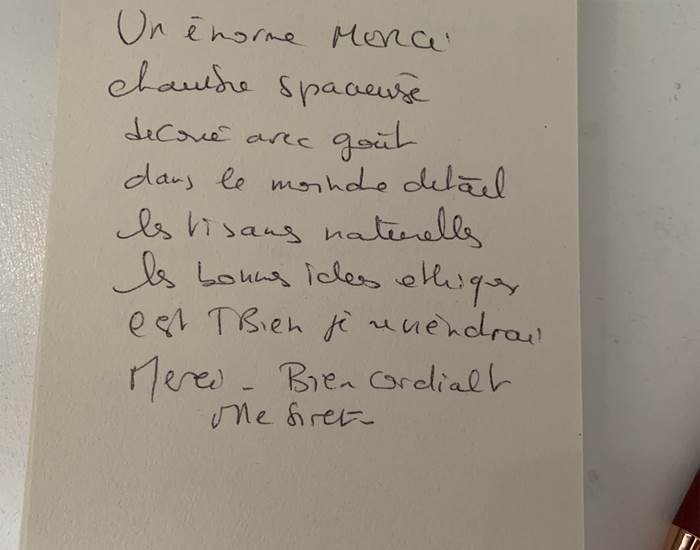 Un énorme Merci
chambre spacieuse
decoré avec goût
dans le moindre detail
les tisans naturelles
les bonnes idées ethiques
est TBien je reviendrai
Merci - Bien cordialt
Mme Siret